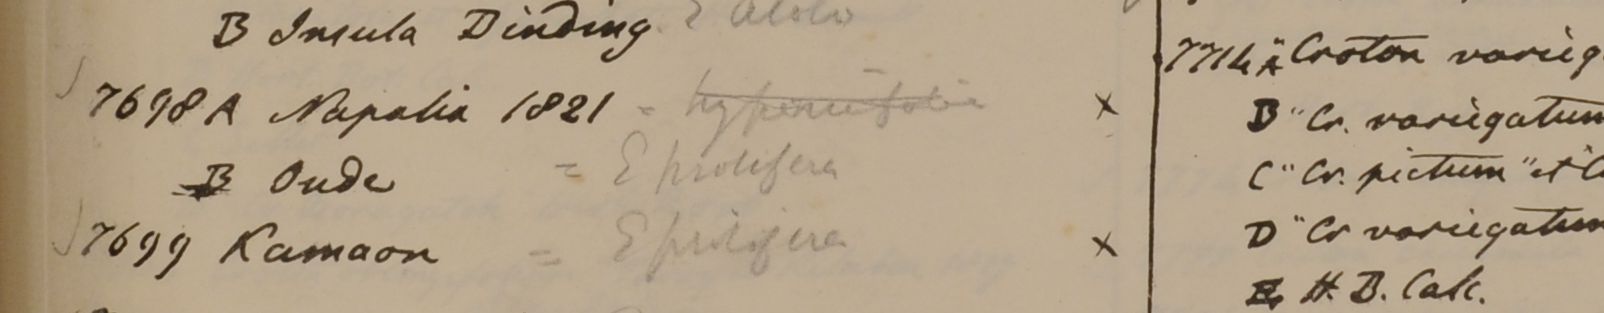 B Insula Dinding E Atoto
7698 A Napalia 1821 = hypericifolia
B Oude = E prolifera
7699 Kamaon = E prolifera
7714 A "Croton varieg
B "Cr. variegatum
C "Cr. pictum" et C
D "Cr variegatum
E H. B. Calc.